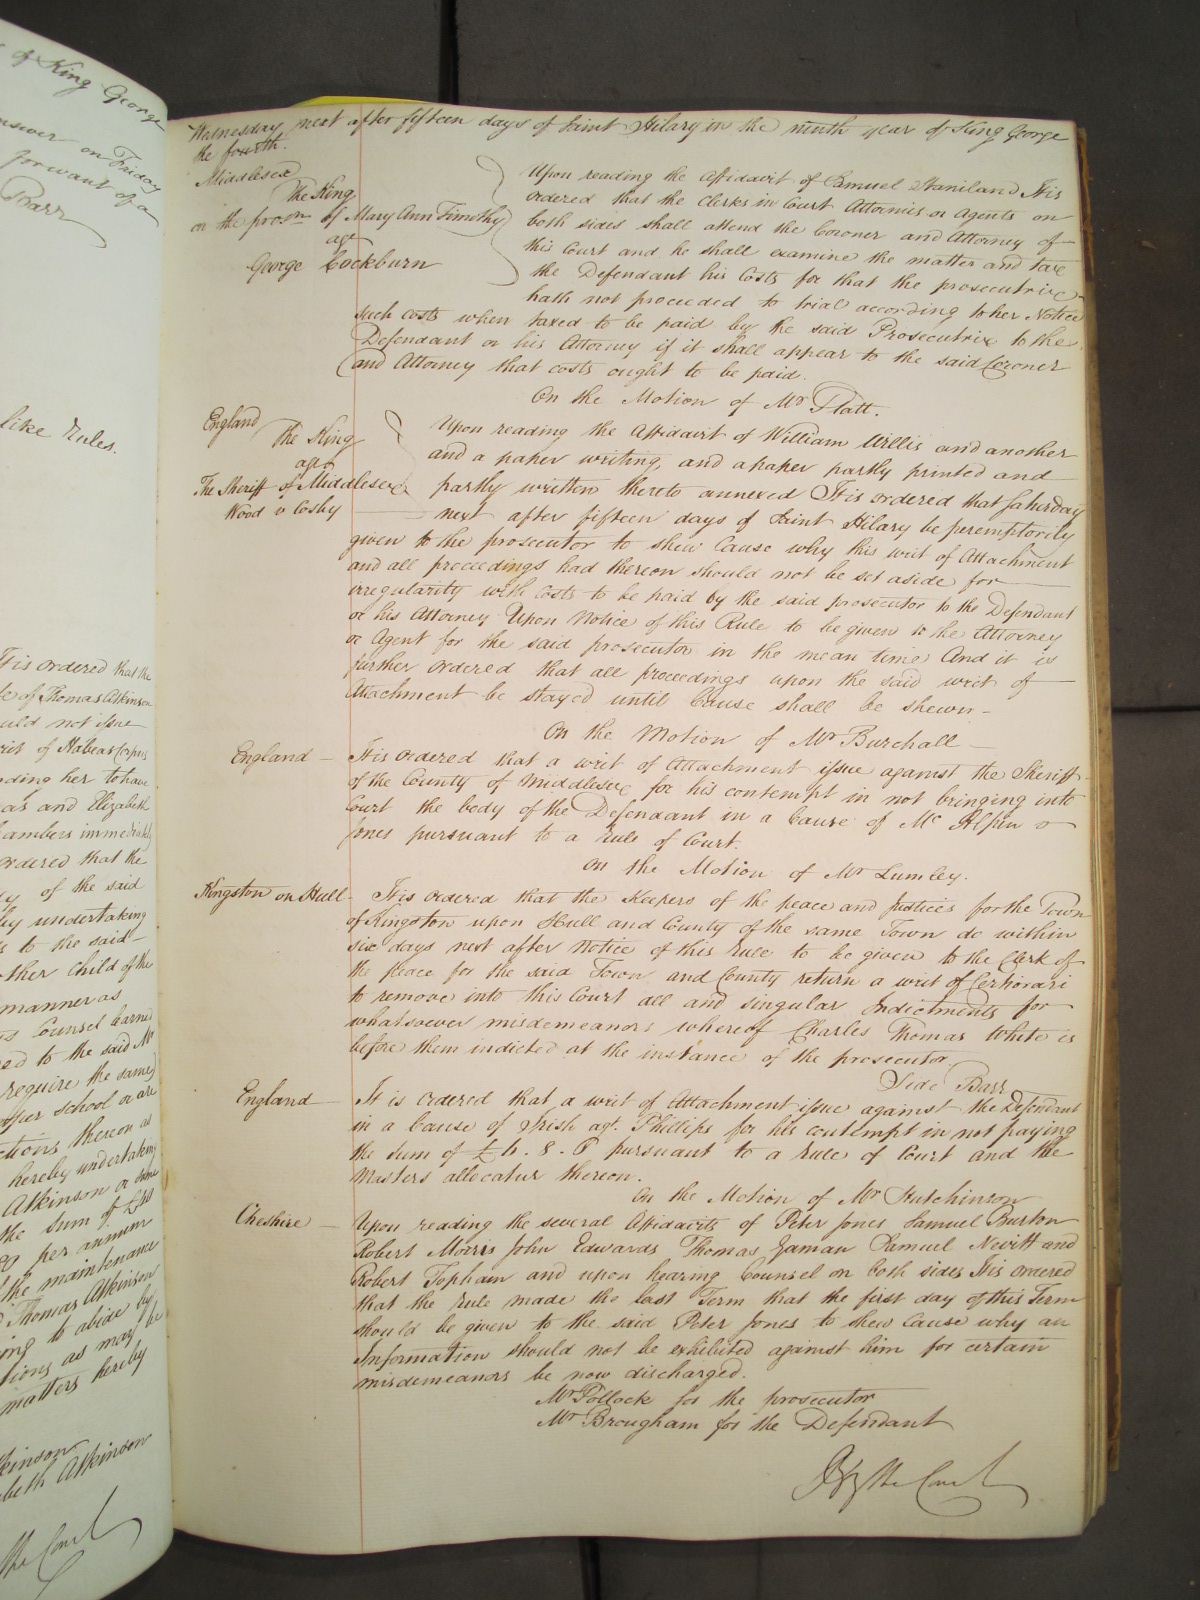 of King George
answer on Friday
for want of a
Barr
like Rules.
It is ordered that the
of Thomas Atkinson
should not issue
writ of Habeas Corpus
her to have
and Elizabeth
Chambers immediately
ordered that the
of the said
undertaking
to the said
other child of the
manner as
Counsel learned
to the said Mr
require the same
school or are
thereon as
hereby undertaking
Atkinson or some
the sum of £
per annum
the maintenance
Thomas Atkinson
to abide by
as may be
matters hereby
Atkinson
Elizabeth Atkinson
By the Court
Wednesday next after fifteen days of Saint Hilary in the ninth year of King George
the fourth.
Middlesex
The King
on the prosn of Mary Ann Timothy
agt
George Cockburn
Upon reading the Affidavit of Samuel Staniland It is
ordered that the Clerks in Court Attornies or Agents on
both sides shall attend the Coroner and Attorney of
this Court and he shall examine the matter and tax
the Defendant his Costs for that the prosecutrix
hath not proceeded to trial according to her Notice
such costs when taxed to be paid by the said Prosecutrix to the
Defendant or his Attorney if it shall appear to the said Coroner
and Attorney that costs ought to be paid.
On the Motion of Mr Platt.
England
The King
agt
The Sheriff of Middlesex
Wood v Cosby
Upon reading the Affidavit of William Willis and another
and a paper writing, and a paper partly printed and
partly written thereto annexed It is ordered that Saturday
next after fifteen days of Saint Hilary be peremptorily
given to the prosecutor to shew Cause why this writ of Attachment
and all proceedings had thereon should not be set aside for
irregularity with costs to be paid by the said prosecutor to the Defendant
or his Attorney Upon Notice of this Rule to be given to the Attorney
or Agent for the said prosecutor in the mean time And it is
further ordered that all proceedings upon the said writ of
Attachment be stayed until Cause shall be shewn -
On the Motion of Mr Burchall -
England - It is ordered that a writ of Attachment issue against the Sheriff
of the County of Middlesex for his contempt in not bringing into
Court the body of the Defendant in a Cause of Mc Alpin v
Jones pursuant to a Rule of Court.
On the Motion of Mr Lumley.
Kingston on Hull - It is ordered that the Keepers of the peace and Justices for the Town
of Kingston upon Hull and County of the same Town do within
six days next after Notice of this rule to be given to the Clerk of
the peace for the said Town and County return a writ of Certiorari
to remove into this Court all and singular Indictments for
whatsoever misdemeanors whereof Charles Thomas White is
before them indicted at the instance of the prosecutor
Side Barr
England - It is ordered that a writ of Attachment issue against the Defendant
in a Cause of Irish agt. Phillips for his contempt in not paying
the sum of £6. 8. 6 pursuant to a rule of Court and the
Masters allocatur thereon.
On the Motion of Mr Hutchinson
Cheshire - Upon reading the several Affidavits of Peter Jones Samuel Burton
Robert Morris John Edwards Thomas Yaman Samuel Nevitt and
Robert Topham and upon hearing Counsel on both sides It is ordered
that the rule made the last Term that the first day of this Term
should be given to the said Peter Jones to shew cause why an
Information should not be exhibited against him for certain
misdemeanors be now discharged.
Mr Pollock for the prosecutor
Mr Brougham for the Defendant
By the Court